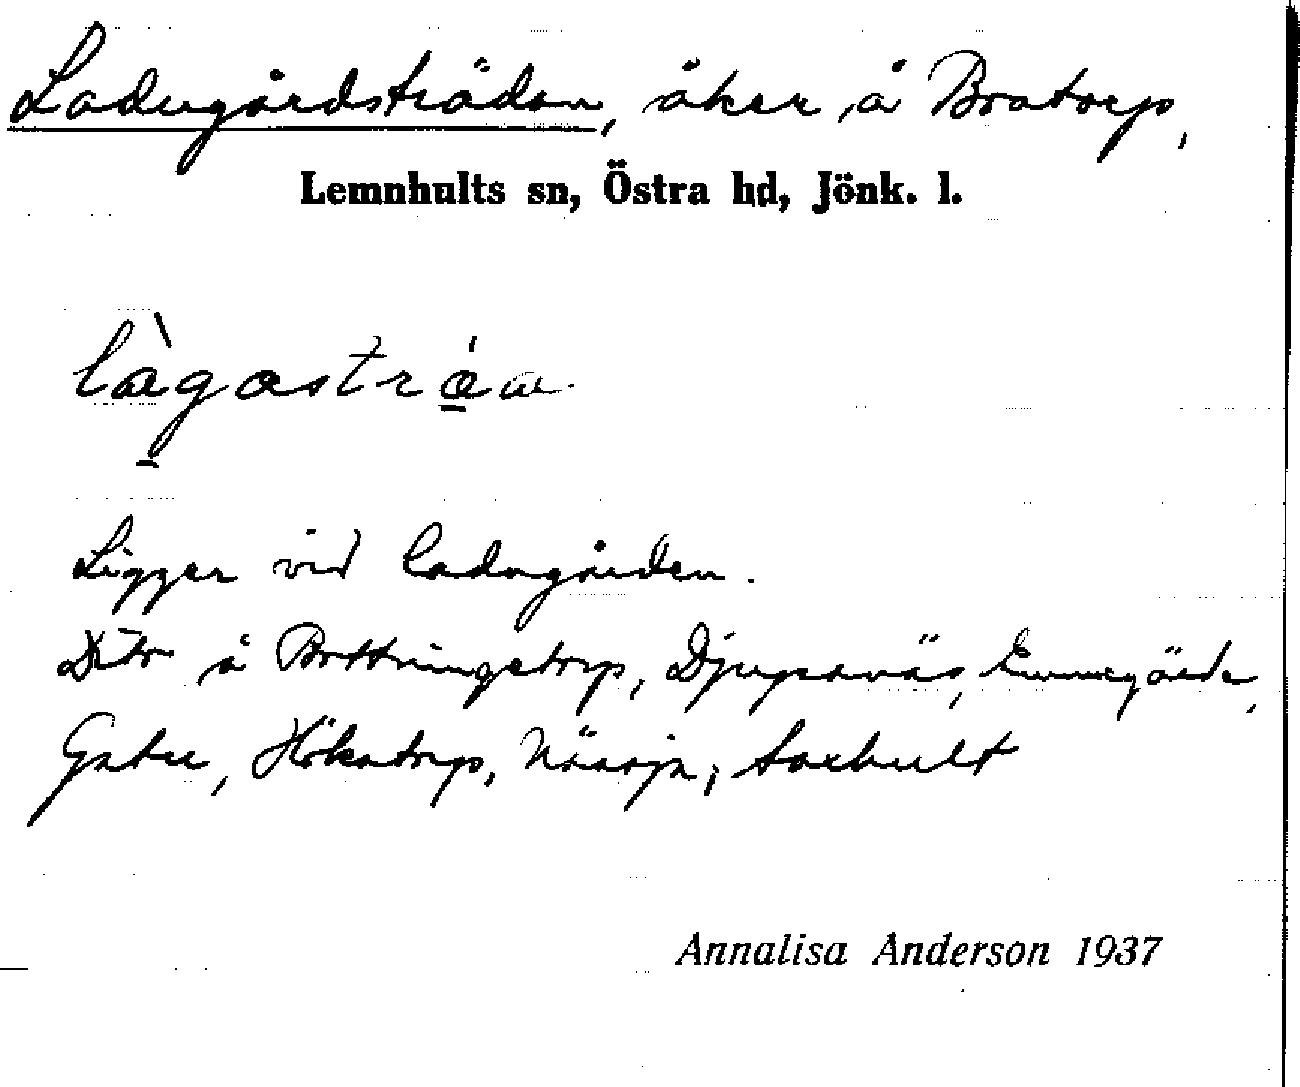 Ladugårdsträdan, åker å Bratorp,
Lemnhults sn, Östra hd, Jönk. l.
làgastrá
Ligger vid ladugården.
Dito å Brottningstorp, Djupsnäs, Emmegärde,
Gnter, Hökatorp, Nässja,
Annalisa Anderson 1937